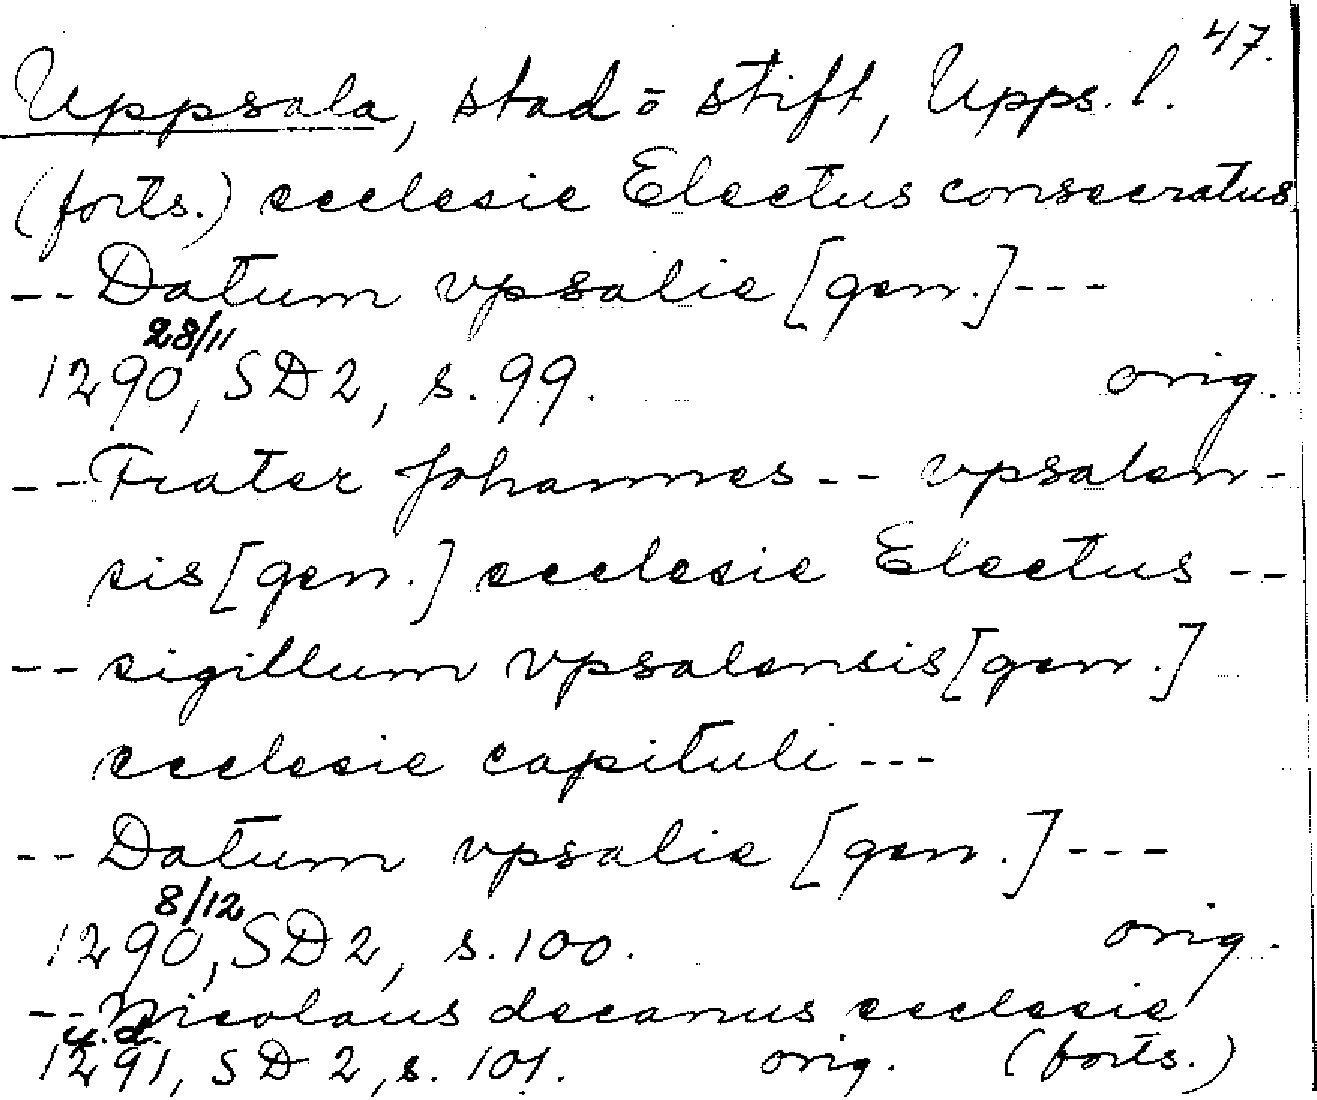 47.
Uppsala, stad o stift, Upps. l.
(forts.) ecclesie Electus consecratus
-- Datum vpsalie [gen.] ---
28/11
1290, SD 2, s. 99. orig.
-- Frater Johannes -- vpsalen-
sis [gen.] ecclesie Electus --
-- sigillum vpsalensis [gen.]
ecclesie capituli ---
-- Datum vpsalie [gen.] ---
8/12
1290, SD 2, s. 100. orig.
-- Nicolaus decanus ecclesie
u.d.
1291, SD 2, s. 101. orig. (forts.)